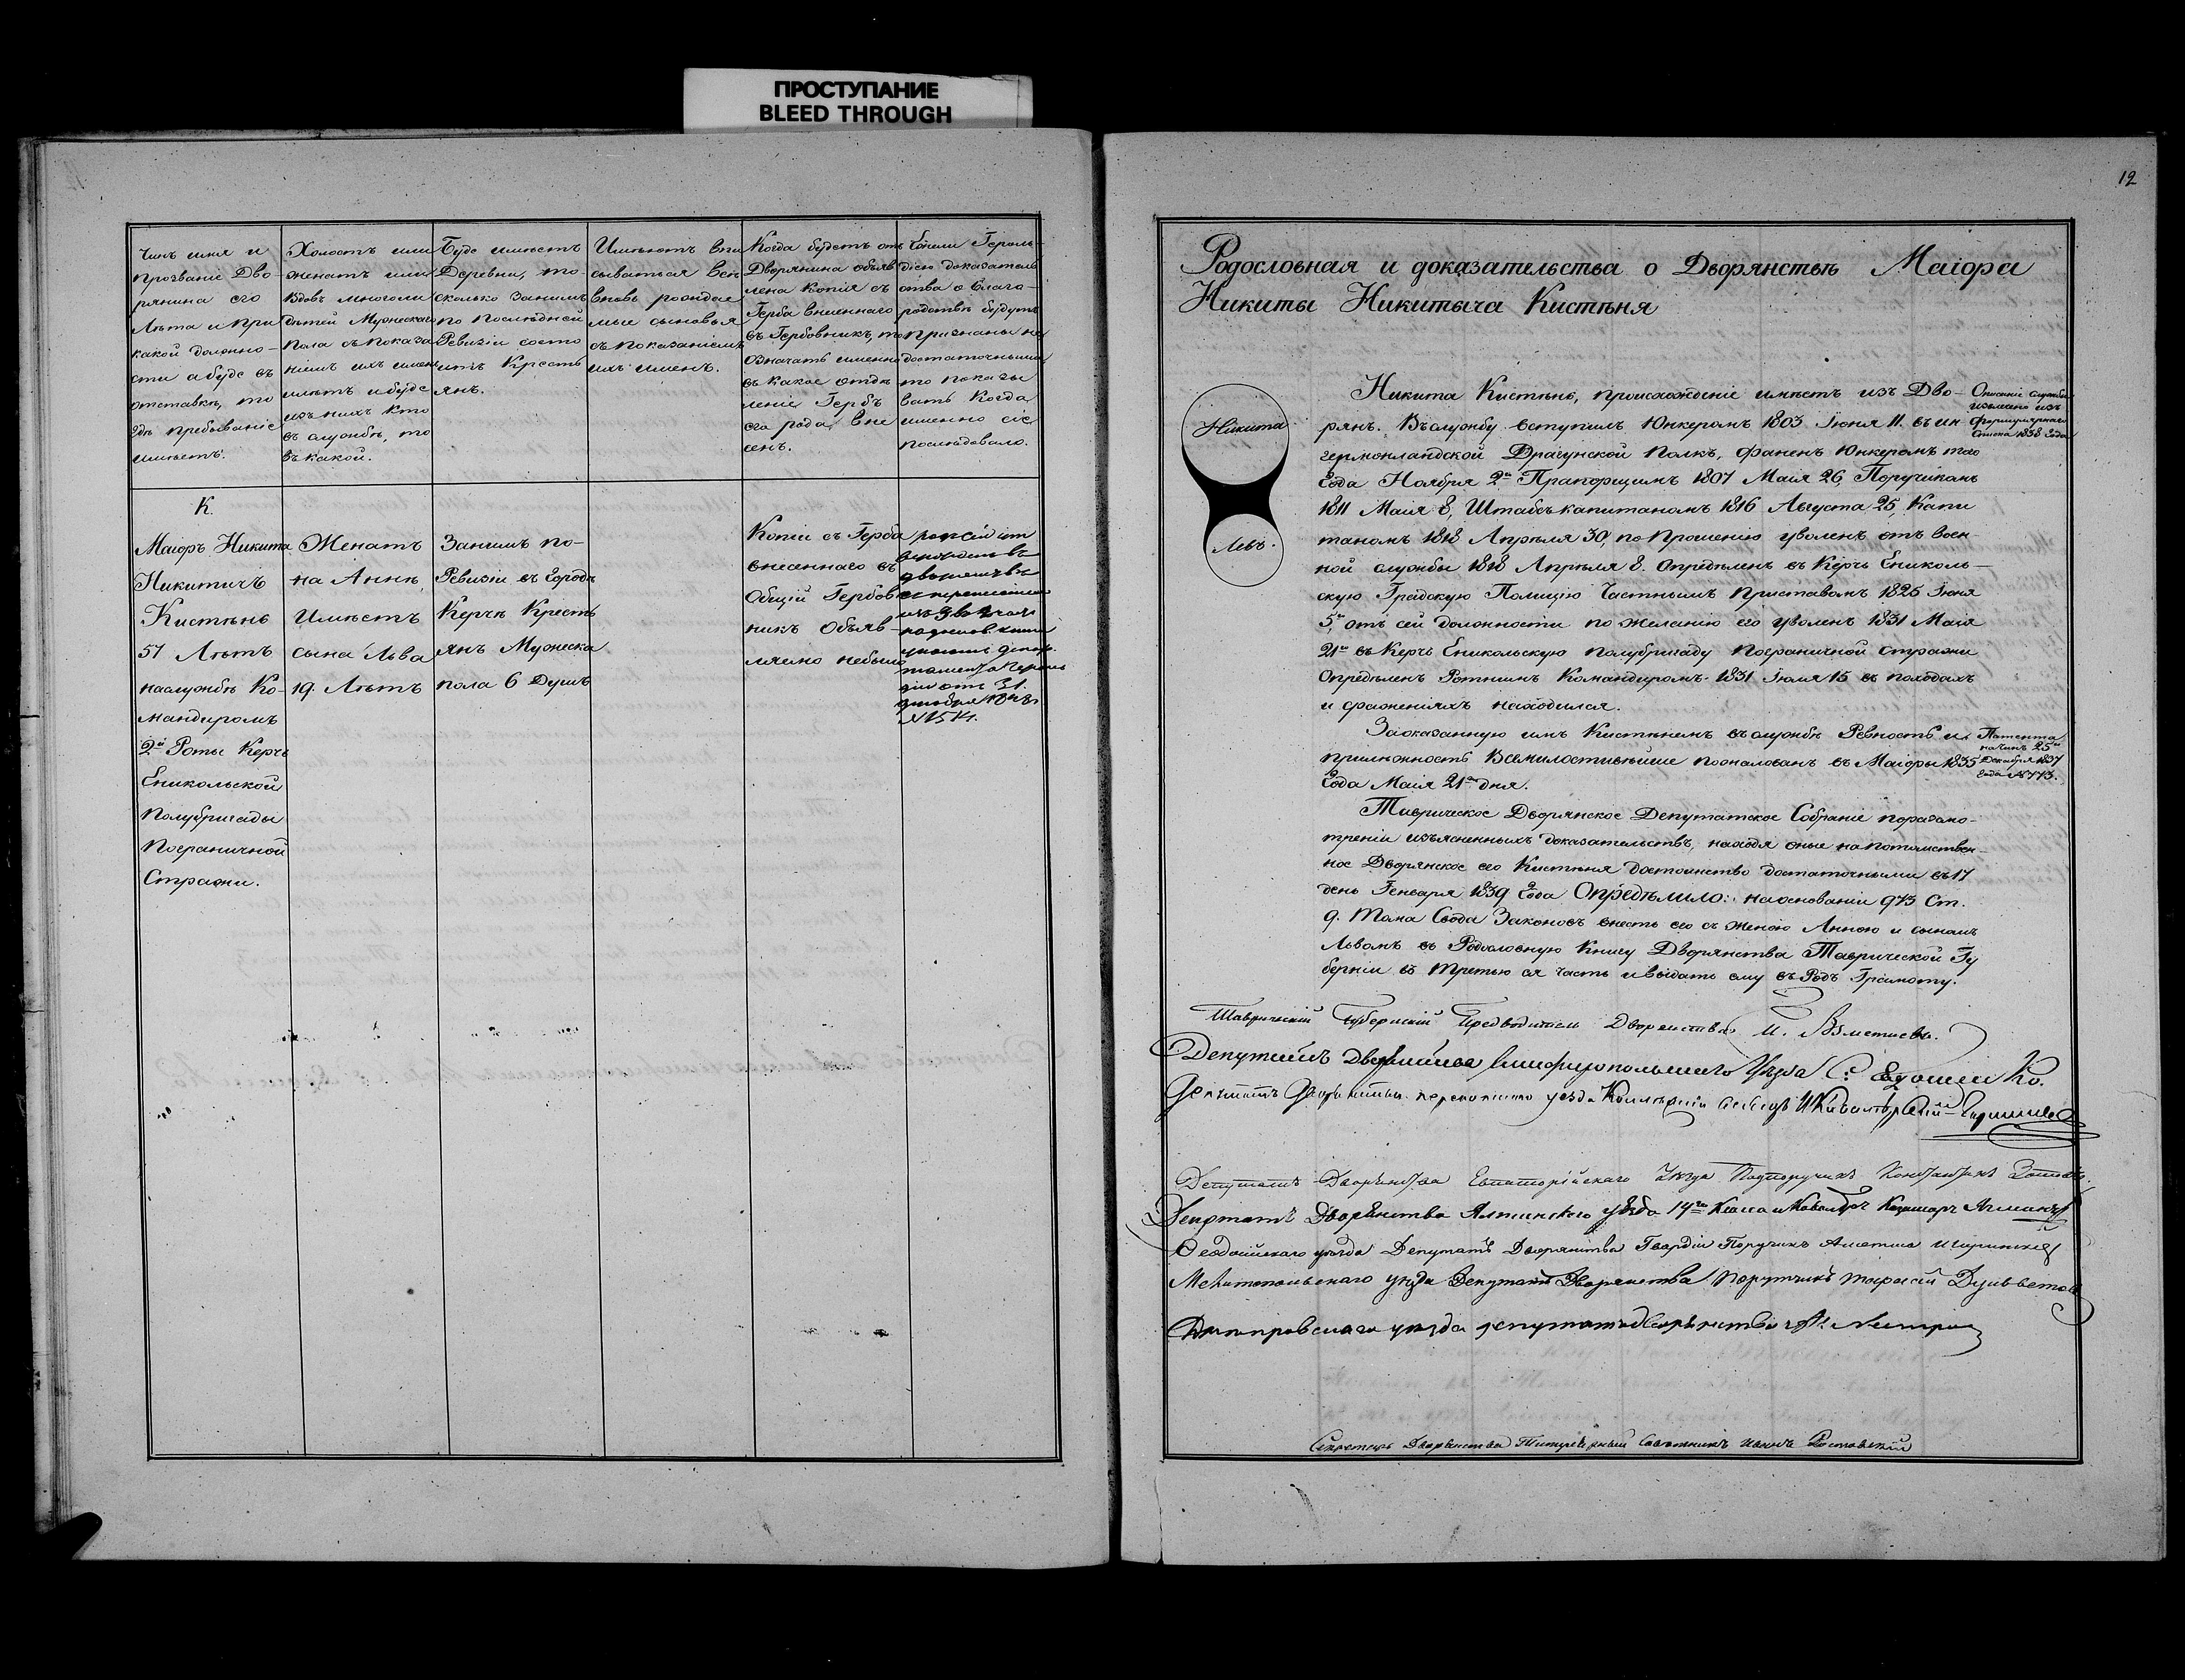 ПРОСТУПАНИЕ
BLEED THROUGH
Чинъ имя и
Прозваніе Дво-
рянина его
Лѣта и При
какой должно-
сти а буде въ
отставкѣ, то
гдѣ пребываніе
имѣетъ.
Холостъ или
женатъ или
Вдовъ многоли
дѣтей Мужескаго
пола съ показа
ніемъ ихъ имен
илѣтъ и буде
изъ нихъ кто
въ службѣ, то
въ какой.
Буде имѣетъ
Деревни, то-
сколько занимъ
по послѣдней
Ревизіи состо
итъ Кресть
янъ.
Имѣютъ впи
сываться Всѣ
вновь рождае
мые сыновья
съ показаніемъ
ихъ именъ.
Когда будетъ отъ
Дворянина объяв
лена Копія съ
Герба внесеннаго
въ Гербовникъ, то
Означать именно
въ какое отдѣ
леніе Гербъ
его рода вне
сенъ.
Ежели Героль-
діею доказатель
ства о Благо-
родствѣ будутъ
признаны не
достаточными
то показы
вать Когда
именно сіе
послѣдовало.
К.
Маіоръ Никита
Никитичъ
Кистѣнь
51 Лѣтъ
наслужбѣ Ко-
мандиромъ
2й Роты Керчь
Еникольской
Полубригады
Пограничной
Стражи.
Женатъ
на Аннѣ
Имѣетъ
сына Льва
19. Лѣтъ
Занимъ по-
Ревизіи въ Городѣ
Керчѣ Кресть
янъ Мужеска
пола 6 Душъ
Копіи съ Герба
внесеннаго въ
Общій Гербов
никъ Объяв-
ляемо небыло
12
Родословная и доказательства о Дворянствѣ Маіора
Никиты Никитыча Кистѣня
Никита
Левъ.
Никита Кистѣнь, происхожденіе имѣетъ изъ Дво-
рянъ. Въслужбу вступилъ Юнкеромъ 1803 Іюня 11. въ Ин
германландской Драгунской Полкъ, Фанен Юнкеромъ того
Года Ноября 2го Прапорщикомъ 1807 Маія 26, Поручикомъ
1811 Маія 8, Штабсъ капитаномъ 1816 Августа 25, Капи
таномъ 1818 Апрѣля 30, по Прошенію уволенъ отъ воен-
ной службы 1818 Апрѣля 8. Опредѣленъ въ Керчь Ениколь-
скую Градскую Полицію Частнымъ Приставомъ 1825 Іюня
5го, отъ сей должности по желанію его уволенъ 1831 Маія
21го въ Керчь Еникольскую полубригаду Пограничной стражи
Опредѣленъ Ротнымъ Командиромъ 1831 Іюля 15 въ походахъ
и сраженіяхъ находился.
Описаніе службы
изъяснено изъ
Формулярнаго
Списка 1838 Года
Заоказанную имъ Кистѣнемъ въслужбѣ Ревность и
прилѣжность Всемилостивѣйше пожалованъ въ Маіоры 1835
Года Маія 21го дня.
Патента
начинъ 25го
Декабря 1837
Года № 773.
Таврическое Дворянское Депутатское Собраніе поразсмо-
трѣніи изъясненныхъ доказательствъ, находя оные напотомствен-
ное Дворянское его Кистѣня достоинство достаточными въ 17
день Генваря 1839 Года Опредѣлило: наоснованіи 973 Ст.
9. Тома Свода Законовъ внесть его съ Женою Анною и сыномъ
Львомъ въ Родословную Книгу Дворянства Таврической Гу
берніи въ третью ея часть и выдать ему въ Родъ Грамоту.
Таврическій Губернскій Предводитель Дворянства
Депутатъ Дворянства Симферопольскаго Уѣзда
Депутатъ Дворянства Перекопскаго уѣзда
Депутатъ Дворянства Евпаторійскаго Уѣзда Подпоручикъ Константинъ
Депутатъ Дворянства Ялтинскаго уѣзда 14го Класса и Кавалеръ
Ѳеодосійскаго уѣзда Депутатъ Дворянства Гвардіи Поручикъ
Мелитопольскаго уѣзда Депутатъ Дворянства Порутчикъ
Днѣпровскаго уѣзда депутатъ дворянства
Секретарь Дворянства Титулярный Совѣтникъ Иванъ Ростовскій